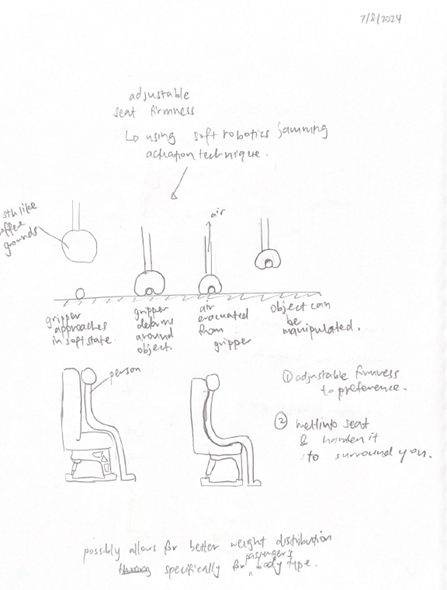 7/8/2024
adjustable
seat firmness
↳ using soft robotics jamming
actuation technique.
air
sth like
coffee
grounds
gripper
approaches
in soft state.
gripper
deforms
around
object.
air
evacuated
from
gripper
object can
be
manipulated.
person
① adjustable firmness
to preference.
② melt into seat
& harden it
to surround you.
possibly allows for better weight distribution
specifically for passenger's body type.